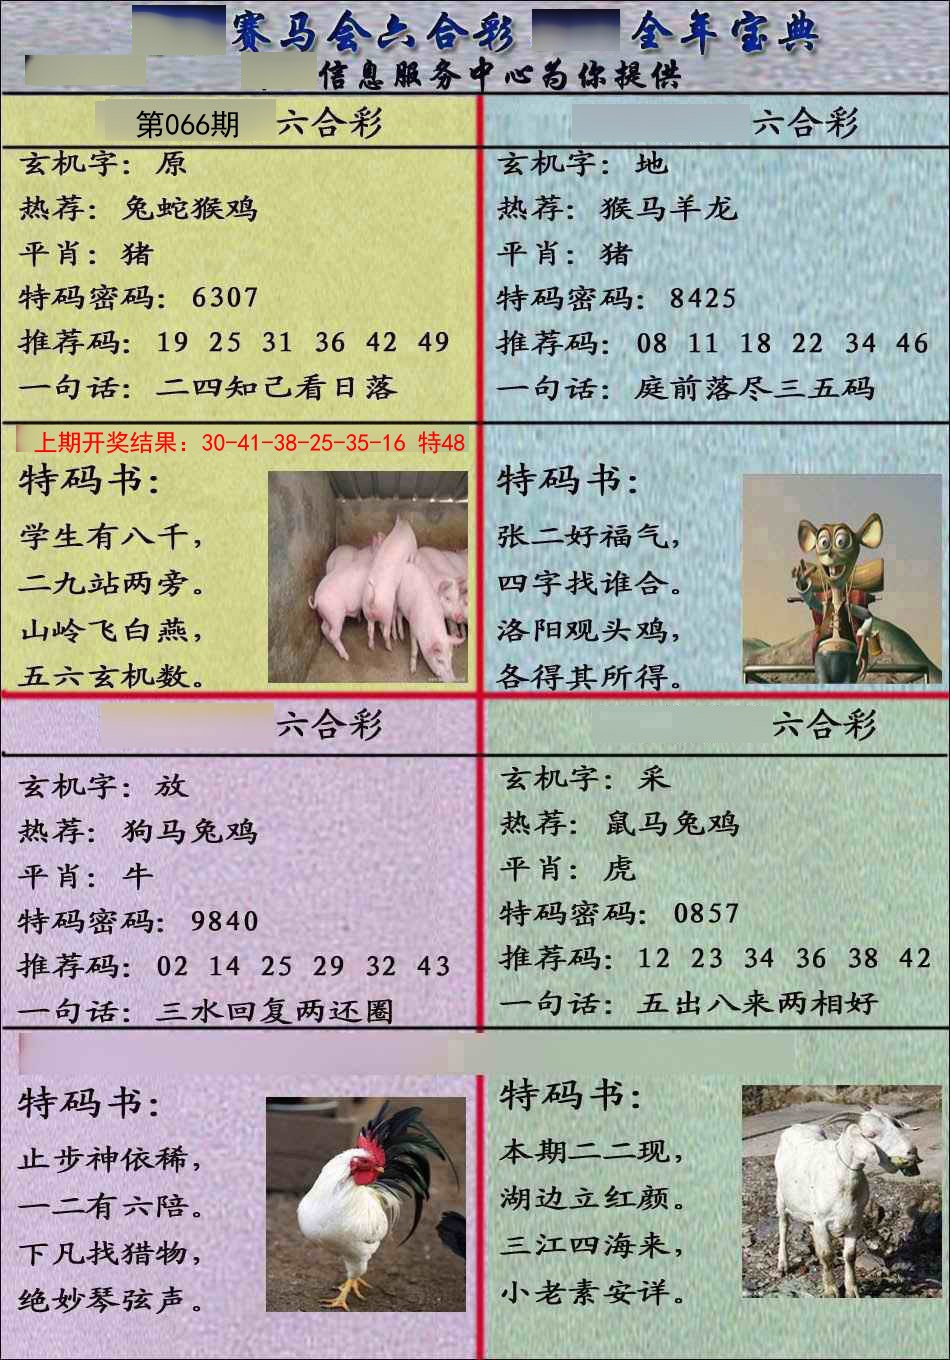 赛马会六合彩 全年宝典
信息服务中心为你提供
第066期 六合彩
玄机字：原
热荐：兔蛇猴鸡
平肖：猪
特码密码：6307
推荐码：19 25 31 36 42 49
一句话：二四知己看日落
上期开奖结果：30-41-38-25-35-16 特48
特码书：
学生有八千，
二九站两旁。
山岭飞白燕，
五六玄机数。
六合彩
玄机字：地
热荐：猴马羊龙
平肖：猪
特码密码：8425
推荐码：08 11 18 22 34 46
一句话：庭前落尽三五码
特码书：
张二好福气，
四字找谁合。
洛阳观头鸡，
各得其所得。
六合彩
玄机字：放
热荐：狗马兔鸡
平肖：牛
特码密码：9840
推荐码：02 14 25 29 32 43
一句话：三水回复两还圈
特码书：
止步神依稀，
一二有六陪。
下凡找猎物，
绝妙琴弦声。
六合彩
玄机字：采
热荐：鼠马兔鸡
平肖：虎
特码密码：0857
推荐码：12 23 34 36 38 42
一句话：五出八来两相好
特码书：
本期二二现，
湖边立红颜。
三江四海来，
小老素安详。